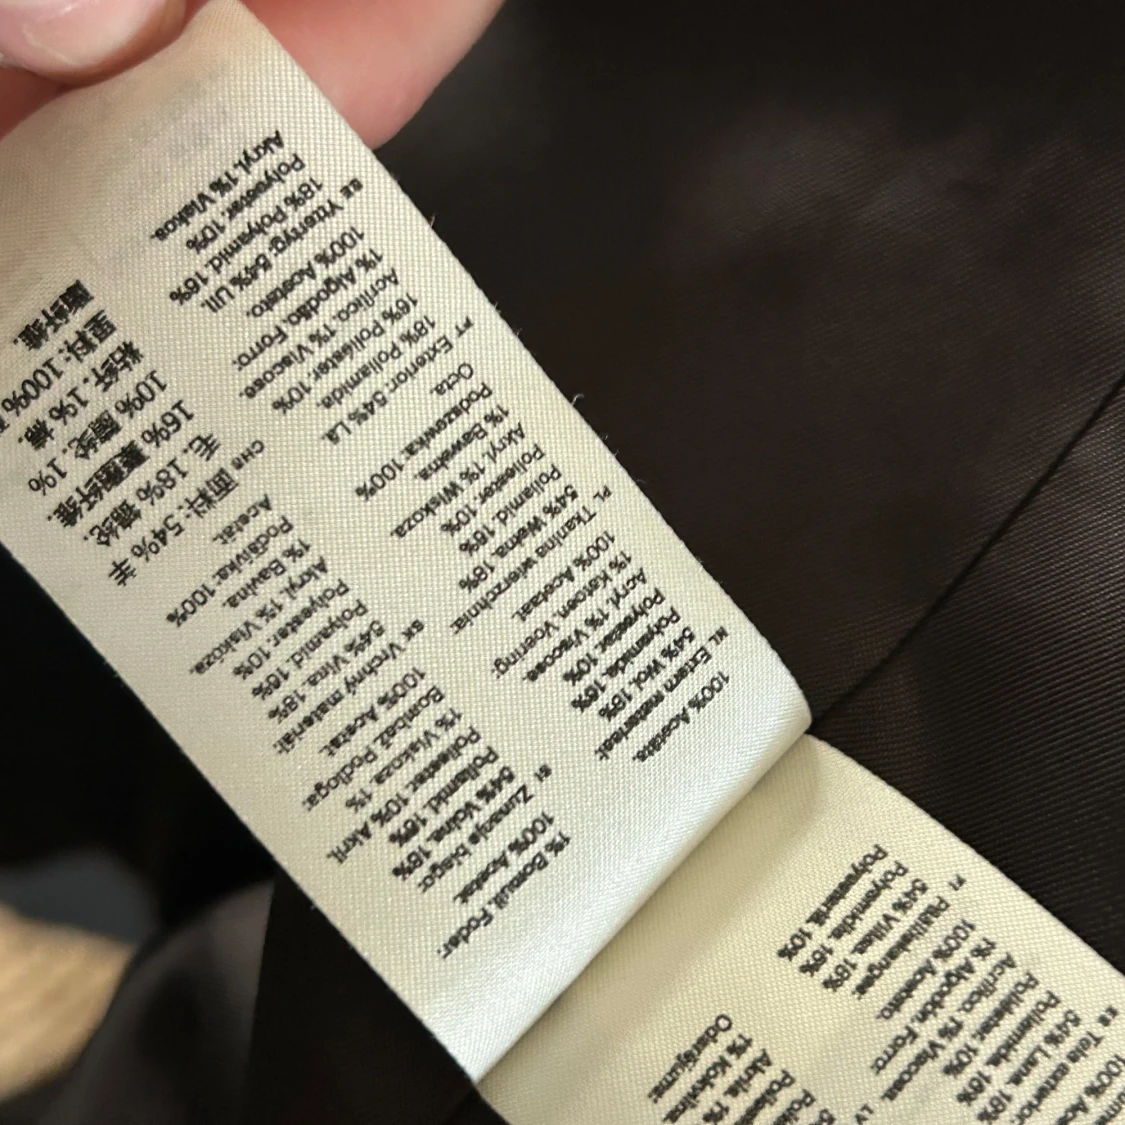 1% Bomull. Foder:
100% Acetat.
SI Zunanja blago:
54% Volna. 18%
Poliamid. 16%
Poliester. 10% Akril.
1% Viskoza. 1%
Bombaž. Podloga:
100% Acetat.
SK Vrchný materiál:
54% Vlna. 18%
Polyamid. 16%
Polyester. 10%
Akryl. 1% Viskóza.
1% Bavlna.
Podšívka: 100%
Acetát.
CHS 面料: 54% 羊
毛. 18% 锦纶.
16% 聚酯纤维.
10% 腈纶. 1%
粘纤. 1% 棉.
里料: 100%
酸纤维.
100% Acetata.
NL Extern materiaal:
54% Wol. 18%
Polyamide. 16%
Polyester. 10%
Acryl. 1% Viscose.
1% Katoen. Voering:
100% Acetaat.
PL Tkanina wierzchnia:
54% Wełna. 18%
Poliamid. 16%
Poliester. 10%
Akryl. 1% Wiskoza.
1% Bawełna.
Podszewka: 100%
Octa.
PT Exterior: 54% Lã.
18% Poliamida.
16% Poliéster. 10%
Acrílico. 1% Viscose.
1% Algodão. Forro:
100% Acetato.
SE Yttertyg: 54% Ull.
18% Polyamid. 16%
Polyester. 10%
Akryl. 1% Viskos.
ES Tela exterior:
54% Lana. 18%
Poliamida. 16%
Poliéster. 10%
Acrílico. 1% Viscosa.
1% Algodón. Forro:
100% Acetato.
FI Päällikangas:
54% Villaa. 18%
Polyamidia. 16%
Polyesteriä. 10%
LV
1% Kokvilna
Oderējums: